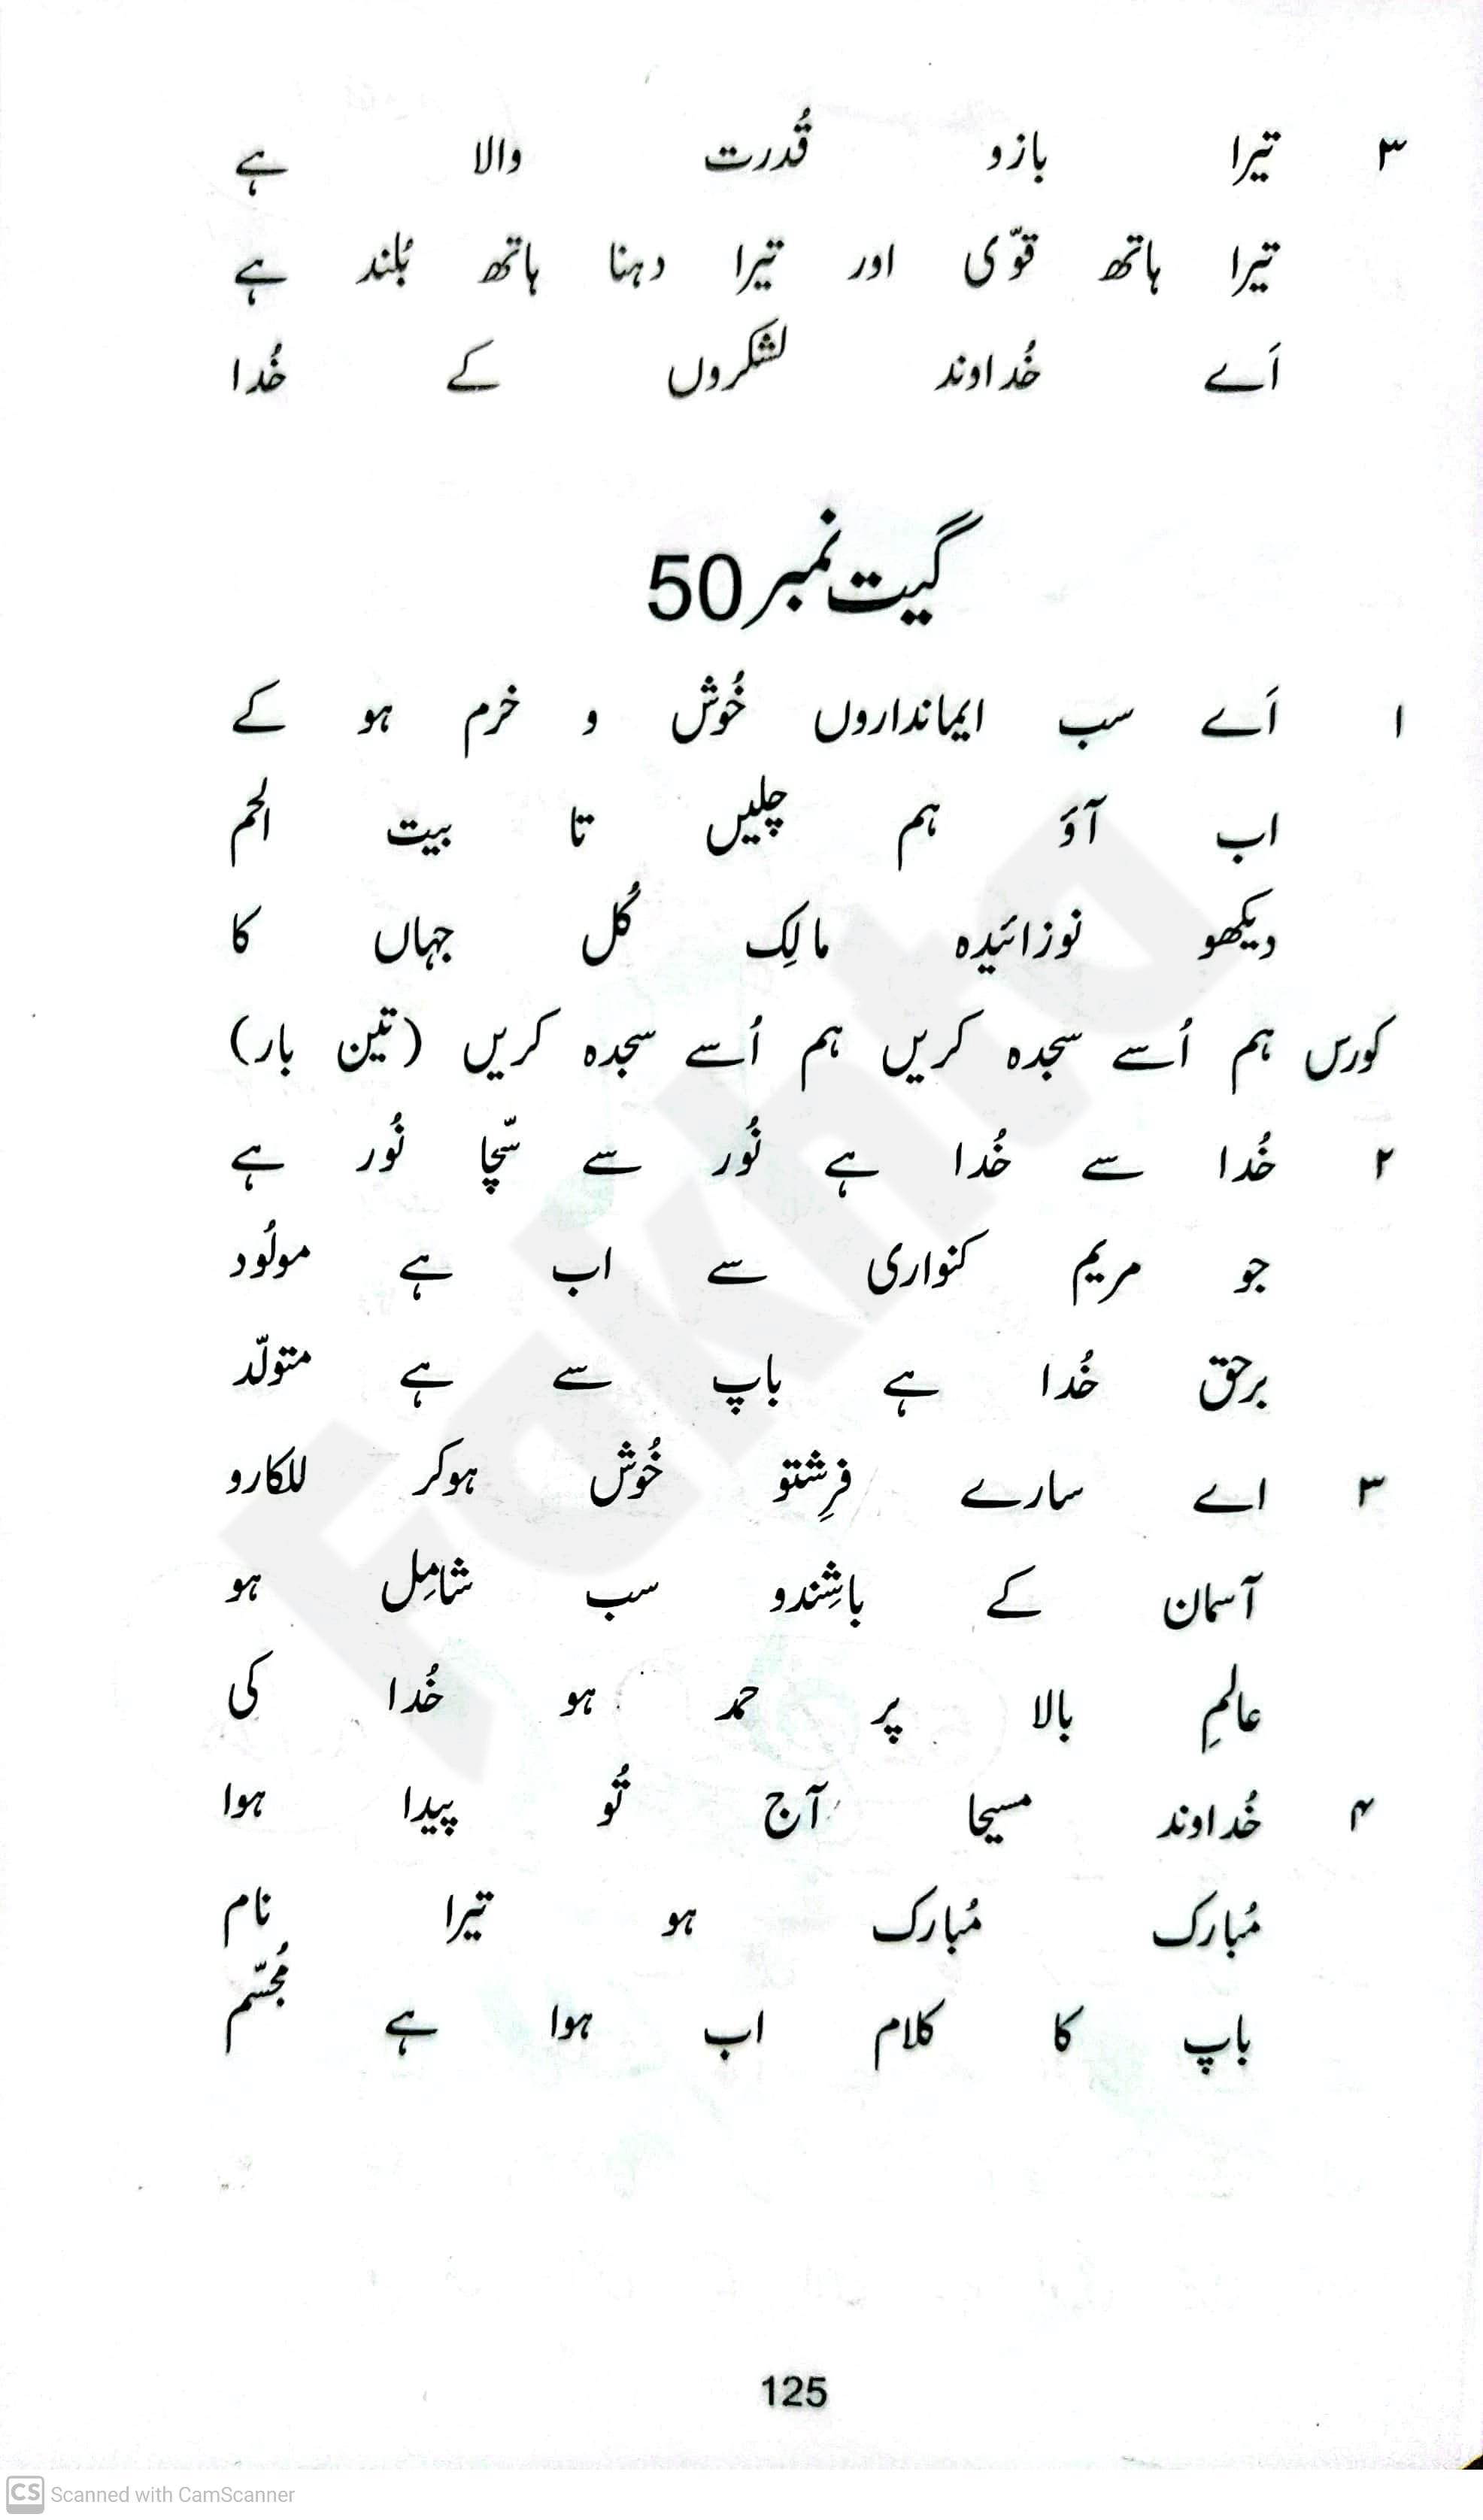 ۳ تیرا بازو قُدرت والا ہے
تیرا ہاتھ قوّی اور تیرا دہنا ہاتھ بُلند ہے
اَے خُداوند لشکروں کے خُدا
گیت نمبر 50
۱ اَے سب ایمانداروں خُوش و خرم ہو کے
اب آؤ ہم چلیں تا بیت الحم
دیکھو نوزائیدہ مالِک کُل جہاں کا
کورس ہم اُسے سجدہ کریں ہم اُسے سجدہ کریں (تین بار)
۲ خُدا سے خُدا ہے نُور سے سّچا نُور ہے
جو مریم کنواری سے اب ہے مولُود
برحق خُدا ہے باپ سے ہے متولّد
۳ اے سارے فرِشتو خُوش ہوکر للکارو
آسمان کے باشِندو سب شامِل ہو
عالمِ بالا پر حمد ہو خُدا کی
۴ خُداوند مسیحا آج تُو پیدا ہوا
مُبارک مُبارک ہو تیرا نام
باپ کا کلام اب ہوا ہے مُجسّم
125
Fakhta
CS Scanned with CamScanner